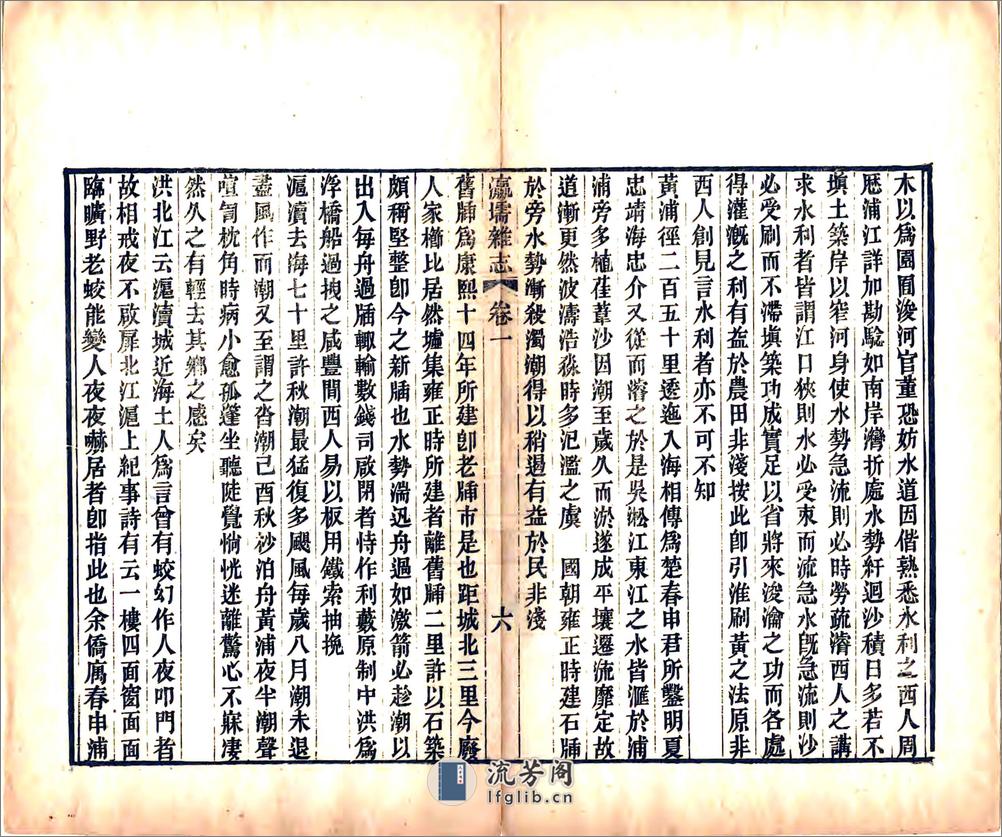 木以爲園囿浚河官董恐妨水道因偕熟悉水利之西人周
厯浦江詳加勘騐如南岸灣折處水勢紆迴沙積日多若不
塡土築岸以窄河身使水勢急流則必時勞疏濬西人之講
求水利者皆謂江口狹則水必受束而流急水旣急流則沙
必受刷而不滯塡築功成實足以省將來浚瀹之功而各處
得灌漑之利有益於農田非淺按此卽引淮刷黃之法原非
西人創見言水利者亦不可不知
黃浦徑二百五十里逶迤入海相傳爲楚春申君所鑿明夏
忠靖海忠介又從而濬之於是吳淞江東江之水皆滙於浦
浦旁多植萑葦沙因潮至歲久而淤遂成平壤遷流靡定故
道漸更然波濤浩淼時多汜濫之虞　國朝雍正時建石牐
於旁水勢漸殺濁潮得以稍過有益於民非淺
瀛壖雜志　卷一　六
舊牐爲康熙十四年所建卽老牐市是也距城北三里今廢
人家櫛比居然墟集雍正時所建者離舊牐二里許以石築
頗稱堅整卽今之新牐也水勢湍迅舟過如激箭必趁潮以
出入每舟過牐輒輸數錢司啟閉者恃作利藪原制中洪爲
浮橋船過拽之咸豐間西人易以板用鐵索抽挽
滬瀆去海七十里許秋潮最猛復多颶風每歲八月潮未退
盡風作而潮又至謂之沓潮己酉秋杪泊舟黃浦夜半潮聲
喧訇枕角時病小愈孤篷坐聽陡覺惝恍迷離驚心不寐凄
然久之有輕去其鄉之感矣
洪北江云滬瀆城近海土人爲言曾有蛟幻作人夜叩門者
故相戒夜不啟扉北江滬上紀事詩有云一樓四面窗面面
臨曠野老蛟能變人夜夜嚇居者卽指此也余僑寓春申浦
流芳阁
lfglib.cn